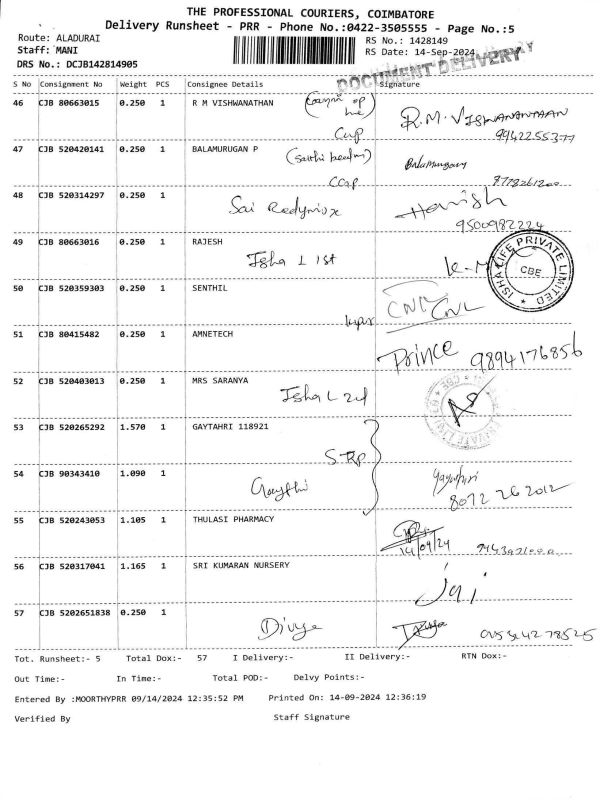 THE PROFESSIONAL COURIERS, COIMBATORE
Delivery Runsheet - PRR - Phone No.:0422-3505555 - Page No.:5
Route: ALADURAI RS No.: 1428149
Staff: MANI RS Date: 14-Sep-2024
DRS No.: DCJB142814905
DOCUMENT DELIVERY
S No Consignment No Weight PCS Consignee Details Signature
46 CJB 80663015 0.250 1 R M VISHWANATHAN R.M. VISWANANTHAAN
9942255377
47 CJB 520420141 0.250 1 BALAMURUGAN P Balamurugan
48 CJB 520314297 0.250 1 Sai Redymix Harish
9500982224
49 CJB 80663016 0.250 1 RAJESH
Isha L 1st ISHA LIFE PRIVATE LIMITED CBE
50 CJB 520359303 0.250 1 SENTHIL
CNL
51 CJB 80415482 0.250 1 AMNETECH Prince 9894176856
52 CJB 520403013 0.250 1 MRS SARANYA
Isha L 2nd
53 CJB 520265292 1.570 1 GAYTAHRI 118921
54 CJB 90343410 1.090 1 Gayathri
8072 26 2012
55 CJB 520243053 1.105 1 THULASI PHARMACY
14/09/24
56 CJB 520317041 1.165 1 SRI KUMARAN NURSERY
Jai
57 CJB 5202651838 0.250 1 Divya
Tot. Runsheet:- 5 Total Dox:- 57 I Delivery:- II Delivery:- RTN Dox:-
Out Time:- In Time:- Total POD:- Delvy Points:-
Entered By :MOORTHYPRR 09/14/2024 12:35:52 PM Printed On: 14-09-2024 12:36:19
Verified By Staff Signature